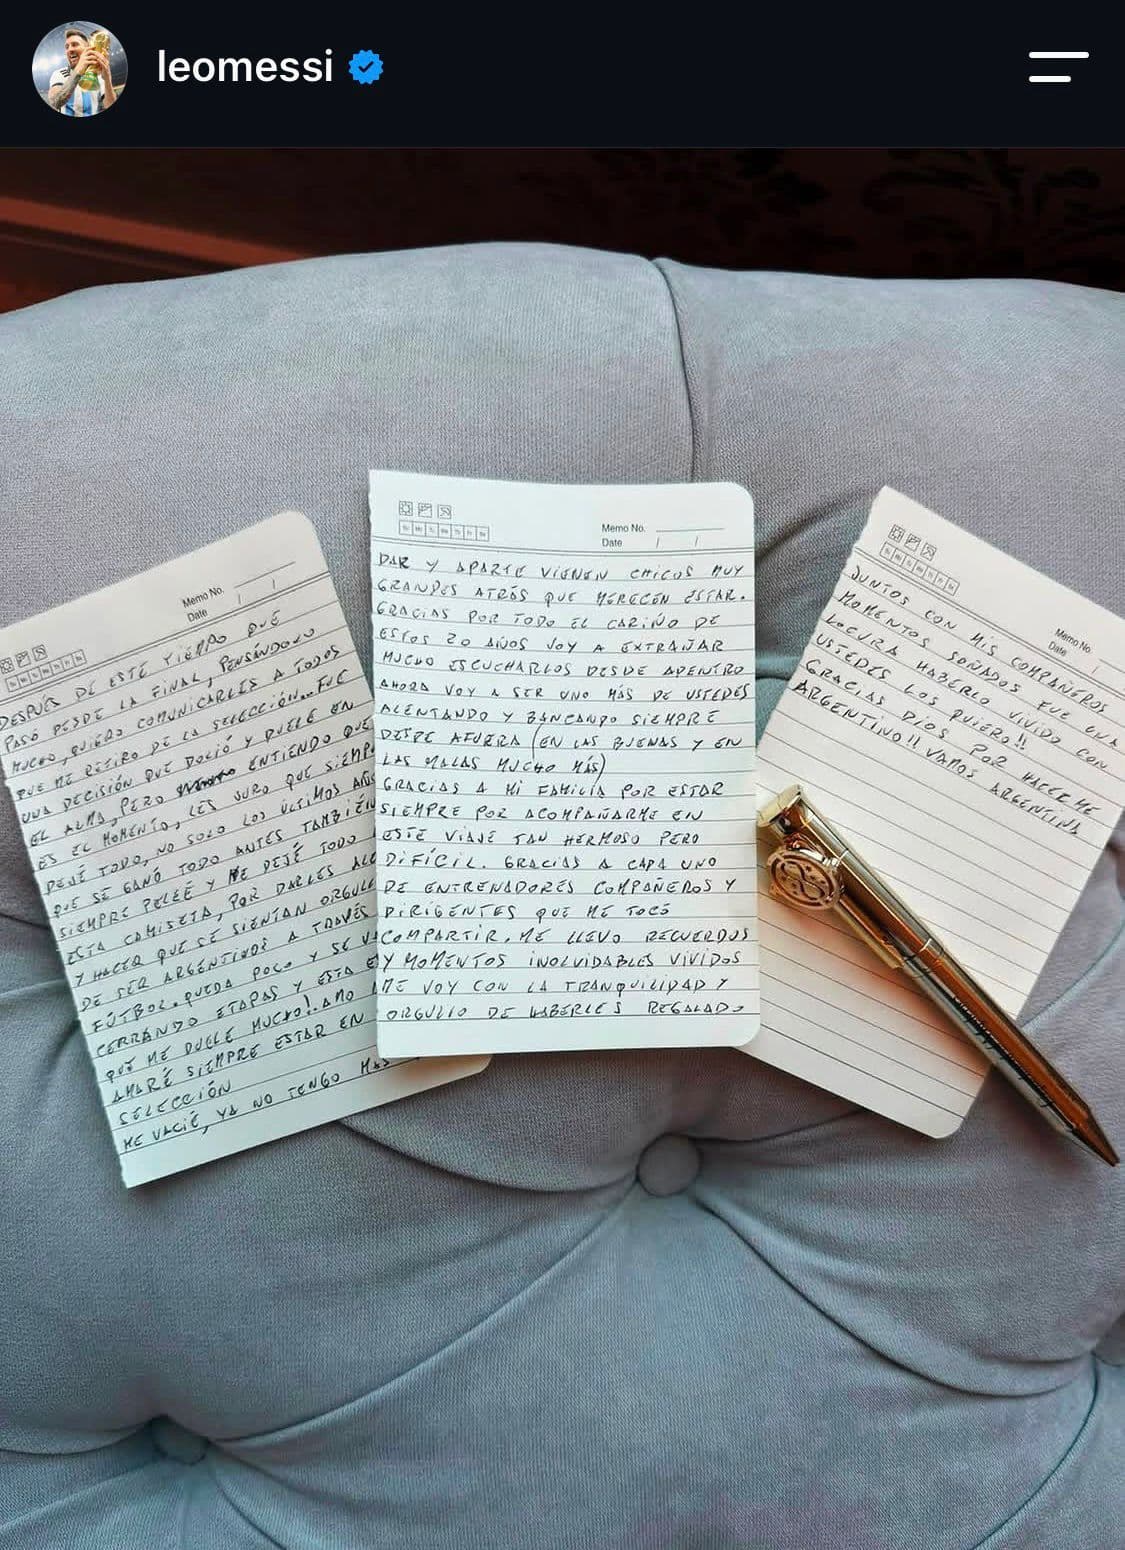 leomessi
Memo No.
Date / /
DESPUÉS DE ESTE TIEMPO QUE
PASÓ DESDE LA FINAL, PENSÁNDOLO
MUCHO, QUIERO COMUNICARLES A TODOS
QUE ME RETIRO DE LA SELECCIÓN... FUE
UNA DECISIÓN QUE DOLIÓ Y DUELE EN
EL ALMA, PERO ENTIENDO QUE
ES EL MOMENTO, LES JURO QUE SIEMP
DEJÉ TODO, NO SOLO LOS ÚLTIMOS AÑOS
QUE SE GANÓ TODO ANTES TAMBIÉN
SIEMPRE PELEÉ Y ME DEJÉ TODO
ESTA CAMISETA, POR DARLES ALE
Y HACER QUE SE SIENTAN ORGULL
DE SER ARGENTINOS A TRAVÉS
FÚTBOL. QUEDA POCO Y SE VA
CERRANDO ETAPAS Y ESTA E
QUE ME DUELE MUCHO!! AMO
AMARÉ SIEMPRE ESTAR EN
SELECCIÓN
ME VACIÉ, YA NO TENGO MÁS
Su Mo Tu We Th Fr Sa
Memo No.
Date / /
DAR Y APARTE VIENEN CHICOS MUY
GRANDES ATRÁS QUE MERECEN ESTAR.
GRACIAS POR TODO EL CARIÑO DE
ESTOS 20 AÑOS VOY A EXTRAÑAR
MUCHO ESCUCHARLOS DESDE ADENTRO
AHORA VOY A SER UNO MÁS DE USTEDES
ALENTANDO Y BANCANDO SIEMPRE
DESDE AFUERA (EN LAS BUENAS Y EN
LAS MALAS MUCHO MÁS)
GRACIAS A MI FAMILIA POR ESTAR
SIEMPRE POR ACOMPAÑARME EN
ESTE VIAJE TAN HERMOSO PERO
DIFÍCIL. GRACIAS A CADA UNO
DE ENTRENADORES COMPAÑEROS Y
DIRIGENTES QUE ME TOCÓ
COMPARTIR. ME LLEVO RECUERDOS
Y MOMENTOS INOLVIDABLES VIVIDOS
ME VOY CON LA TRANQUILIDAD Y
ORGULLO DE HABERLES REGALADO
Memo No.
Date /
JUNTOS CON MIS COMPAÑEROS
MOMENTOS SOÑADOS FUE UNA
LOCURA HABERLO VIVIDO CON
USTEDES LOS QUIERO!!
GRACIAS DIOS POR HACERME
ARGENTINO!! VAMOS ARGENTINA